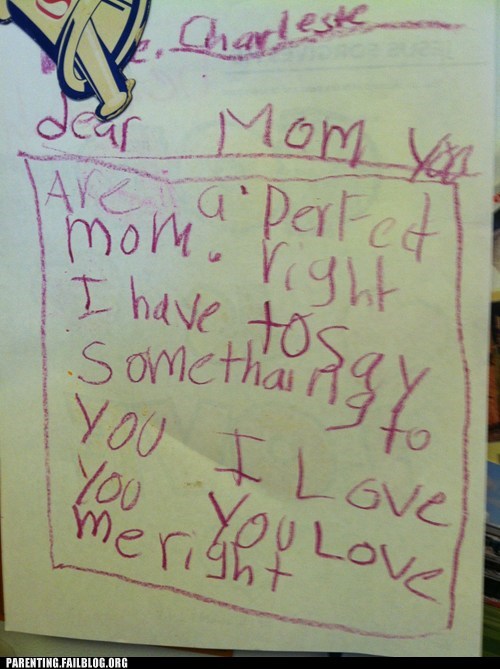 Charleste
dear Mom You
Are a perfect
mom. right
I have to say
somethaing to
you I Love
You You Love
me right
PARENTING.FAILBLOG.ORG